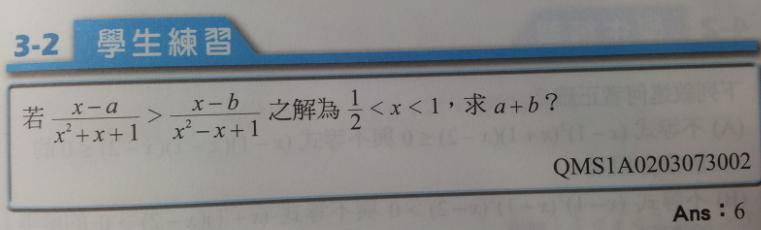 3-2 學生練習
若 \frac{x-a}{x^2+x+1} > \frac{x-b}{x^2-x+1} 之解為 \frac{1}{2} < x < 1，求 a+b？
QMS1A0203073002
Ans：6